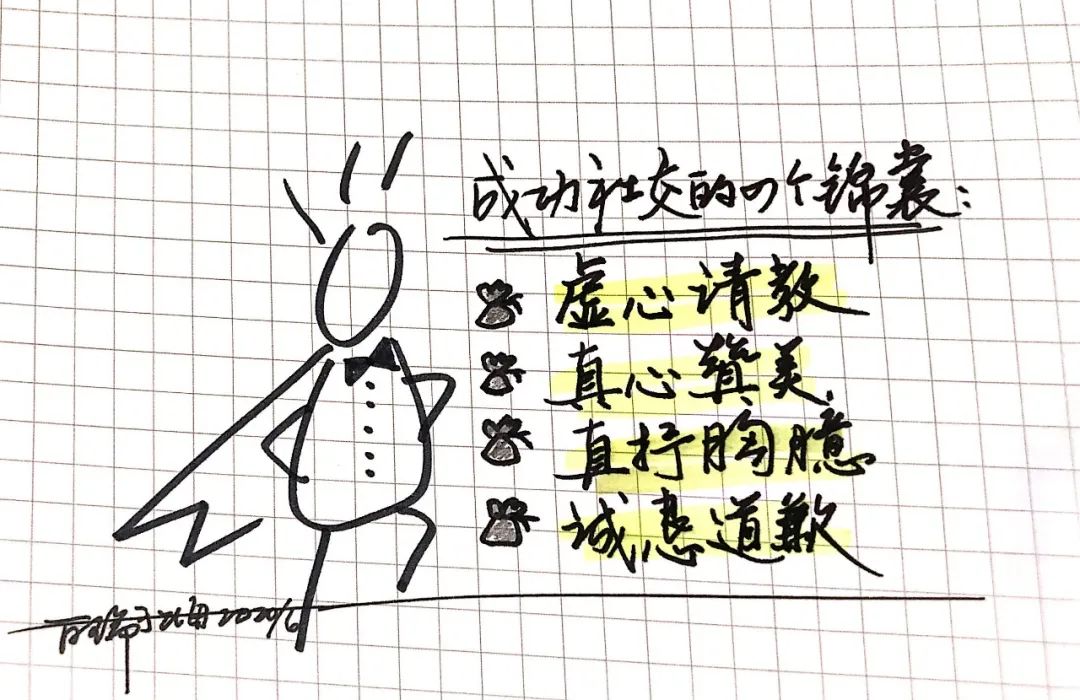 成功社交的四个锦囊:
虚心请教
真心赞美
直抒胸臆
诚恳道歉
2020/6